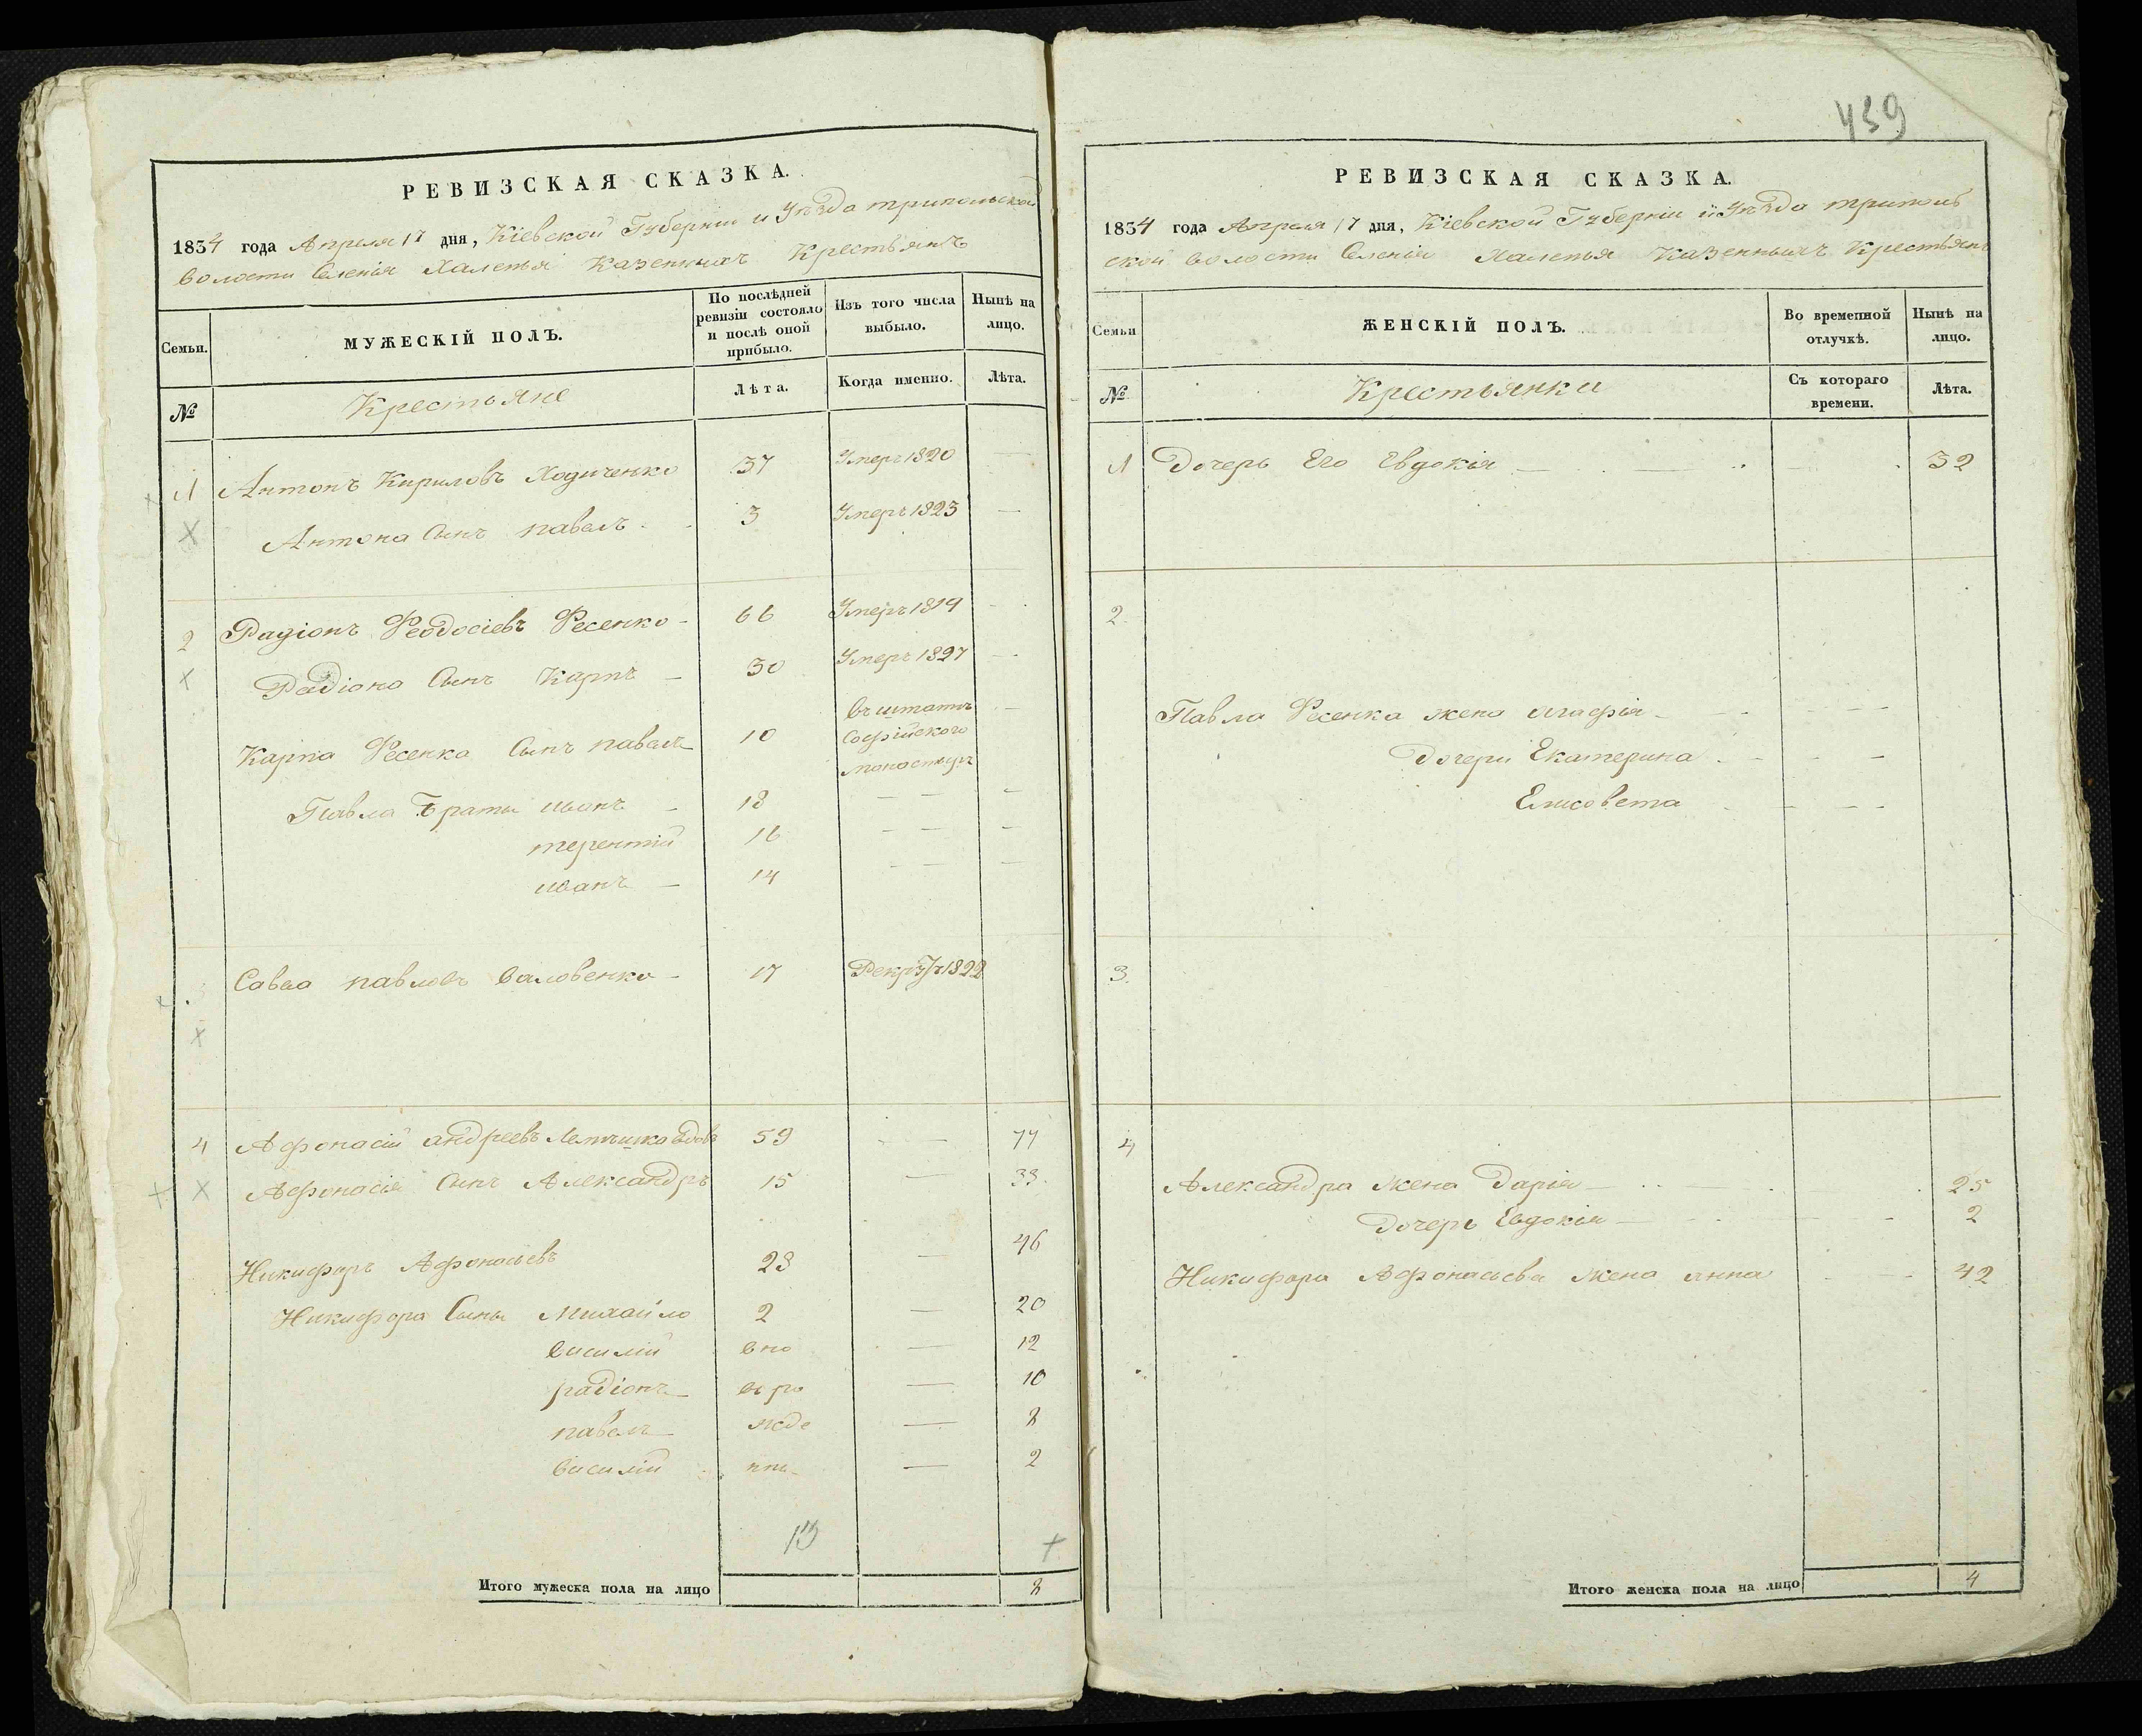 РЕВИЗСКАЯ СКАЗКА.
1834 года Апреля 17 дня, Кіевской Губерніи и Уѣзда трипольской
волости Селенія Халепья Казенныхъ Крестьянъ
Семьи.
МУЖЕСКІЙ ПОЛЪ.
По послѣдней
ревизіи состояло
и послѣ оной
прибыло.
Изъ того числа
выбыло.
Нынѣ на
лицо.
№
Крестьяне
Лѣта.
Когда именно.
Лѣта.
1 Антонъ Кириловъ Ходиченко 37 Умеръ 1820 —
Антона Сынъ павелъ 3 Умеръ 1823 —
2 Радіонъ Феодосіевъ Фесенко 66 Умеръ 1819
Радіона Сынъ Карпъ — 30 Умеръ 1827 —
Карпа Фесенка Сынъ павелъ 10 въ штатъ
Софійского
монастыр
Павла Браты иванъ — 18 — — —
терентій 16 — — —
иванъ — 14 — — —
3 Савва павловъ Саловенко — 17 Рекр 1822
4 Афонасій андреевъ вдовъ 59 — 77
Афонасія Сынъ Александръ 15 — 33.
Никифоръ Афонасьевъ 28 — 46
Никифора Сыны Михайло 2 — 20
василій вно — 12
радіонъ вь ро — 10
павелъ жде — 8
василій нны — 2
13
Итого мужеска пола на лицо 8
439
РЕВИЗСКАЯ СКАЗКА.
1834 года Апреля 17 дня, Кіевской Губерніи и Уѣзда триполь
ской волости Селенія Халепья Казенныхъ Крестьянъ
Семьи
ЖЕНСКІЙ ПОЛЪ.
Во временной
отлучкѣ.
Нынѣ на
лицо.
№
Крестьянки
Съ котораго
времени.
Лѣта.
1 Дочерь Его Евдокія — — 32
2.
Павла Фесенка жена агафія — — —
Дочери Екатерина — —
Елисовета — — —
3.
4
Александра жена Дарія — — 25
Дочерь Евдокія — — — 2
Никифора Афонасьева жена анна — — 42
Итого женска пола на лицо 4